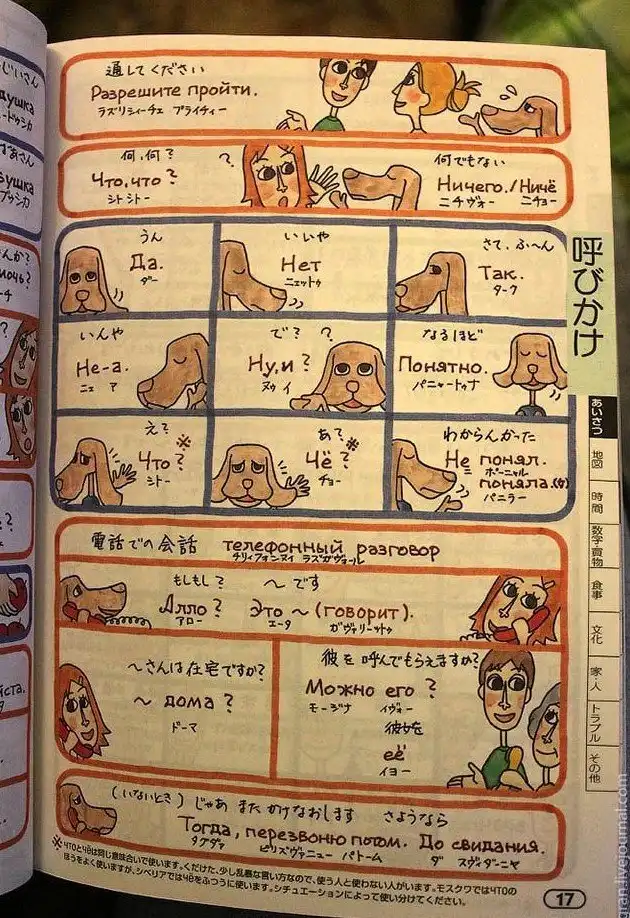 じいさん
душка
ードゥシカ
あさん
вушка
ブッシカ
んか?
мочь?
ーチ
?
?
е?
ста.
通してください
Разрешите пройти.
ラズリシィーチェ プライチィー
何,何?
?
Что,что?
シトシトー
何でもない
Ничего./Ничё
ニチヴォー ニチョー
うん
Да.
ダー
いいや
Нет
ニェットゥ
さて、ふ〜ん
Так.
ターク
いんや
Не-а.
ニェ ア
で? ?
Ну,и?
ヌゥ イ
なるほど
Понятно.
パニャートゥナ
え?
※
Что?
シトー
あ?
※
Чё?
チョー
わからんかった
Не понял.
ポーニャル
поняла.(女)
パニラー
電話での会話 телефонный разговор
チリィフォーンヌイ ラズガヴォール
もしもし? 〜です
Алло? Это ~ (говорит).
アロー エータ ガヴァリートゥ
〜さんは在宅ですか?
~ дома?
ドーマ
彼を呼んでもらえますか?
Можно его?
モージナ イヴォー
彼女を
её
イヨー
(いないとき) じゃあ またかけなおします さようなら
Тогда, перезвоню потом. До свидания.
タグダァ ピリズヴァニュー パトーム ダ スヴィダーニヤ
※чтоとчёは同じ意味合いで使います。くだけた、少し乱暴な言い方なので、使う人と使わない人がいます。モスクワではчтоの
ほうをよく使いますが、シベリアではчёをふつうに使います。シチュエーションによって使い分けてください。
17
呼びかけ
あいさつ
地図
時間
数字買物
食事
文化
家・人
トラブル
その他
ran.livejournal.com